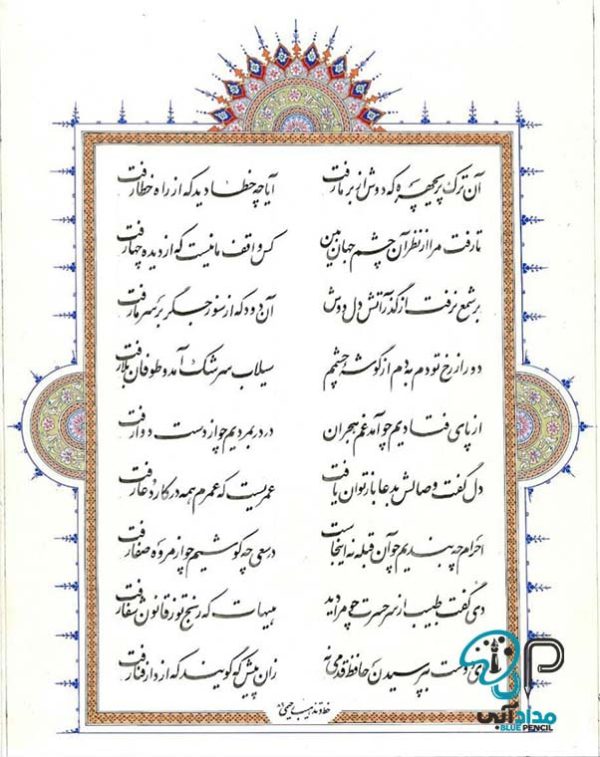 آن ترک پریچهره که دوش از بر ما رفت آیا چه خطا دید که از راه خطا رفت
تا رفت مرا از نظر آن چشم جهان بین کس واقف ما نیست که از دیده چها رفت
بر شمع نرفت از گذر آتش دل دوش آن دود که از سوز جگر بر سر ما رفت
دور از رخ تو دم بدم از گوشه چشمم سیلاب سرشک آمد و طوفان بلا رفت
از پای فتادیم چو آمد غم هجران در درد بمردیم چو از دست دوا رفت
دل گفت وصالش بدعا باز توان یافت عمریست که عمرم همه در کار دعا رفت
احرام چه بندیم چو آن قبله نه اینجاست در سعی چه کوشیم چو از مروه صفا رفت
دی گفت طبیب از سر حسرت چو مرا دید هیهات که رنج تو ز قانون شفا رفت
ای دوست بپرسیدن حافظ قدمی نه زان پیش که گویند که از دار فنا رفت
خط و تذهیب
مداد آبی
BLUE PENCIL